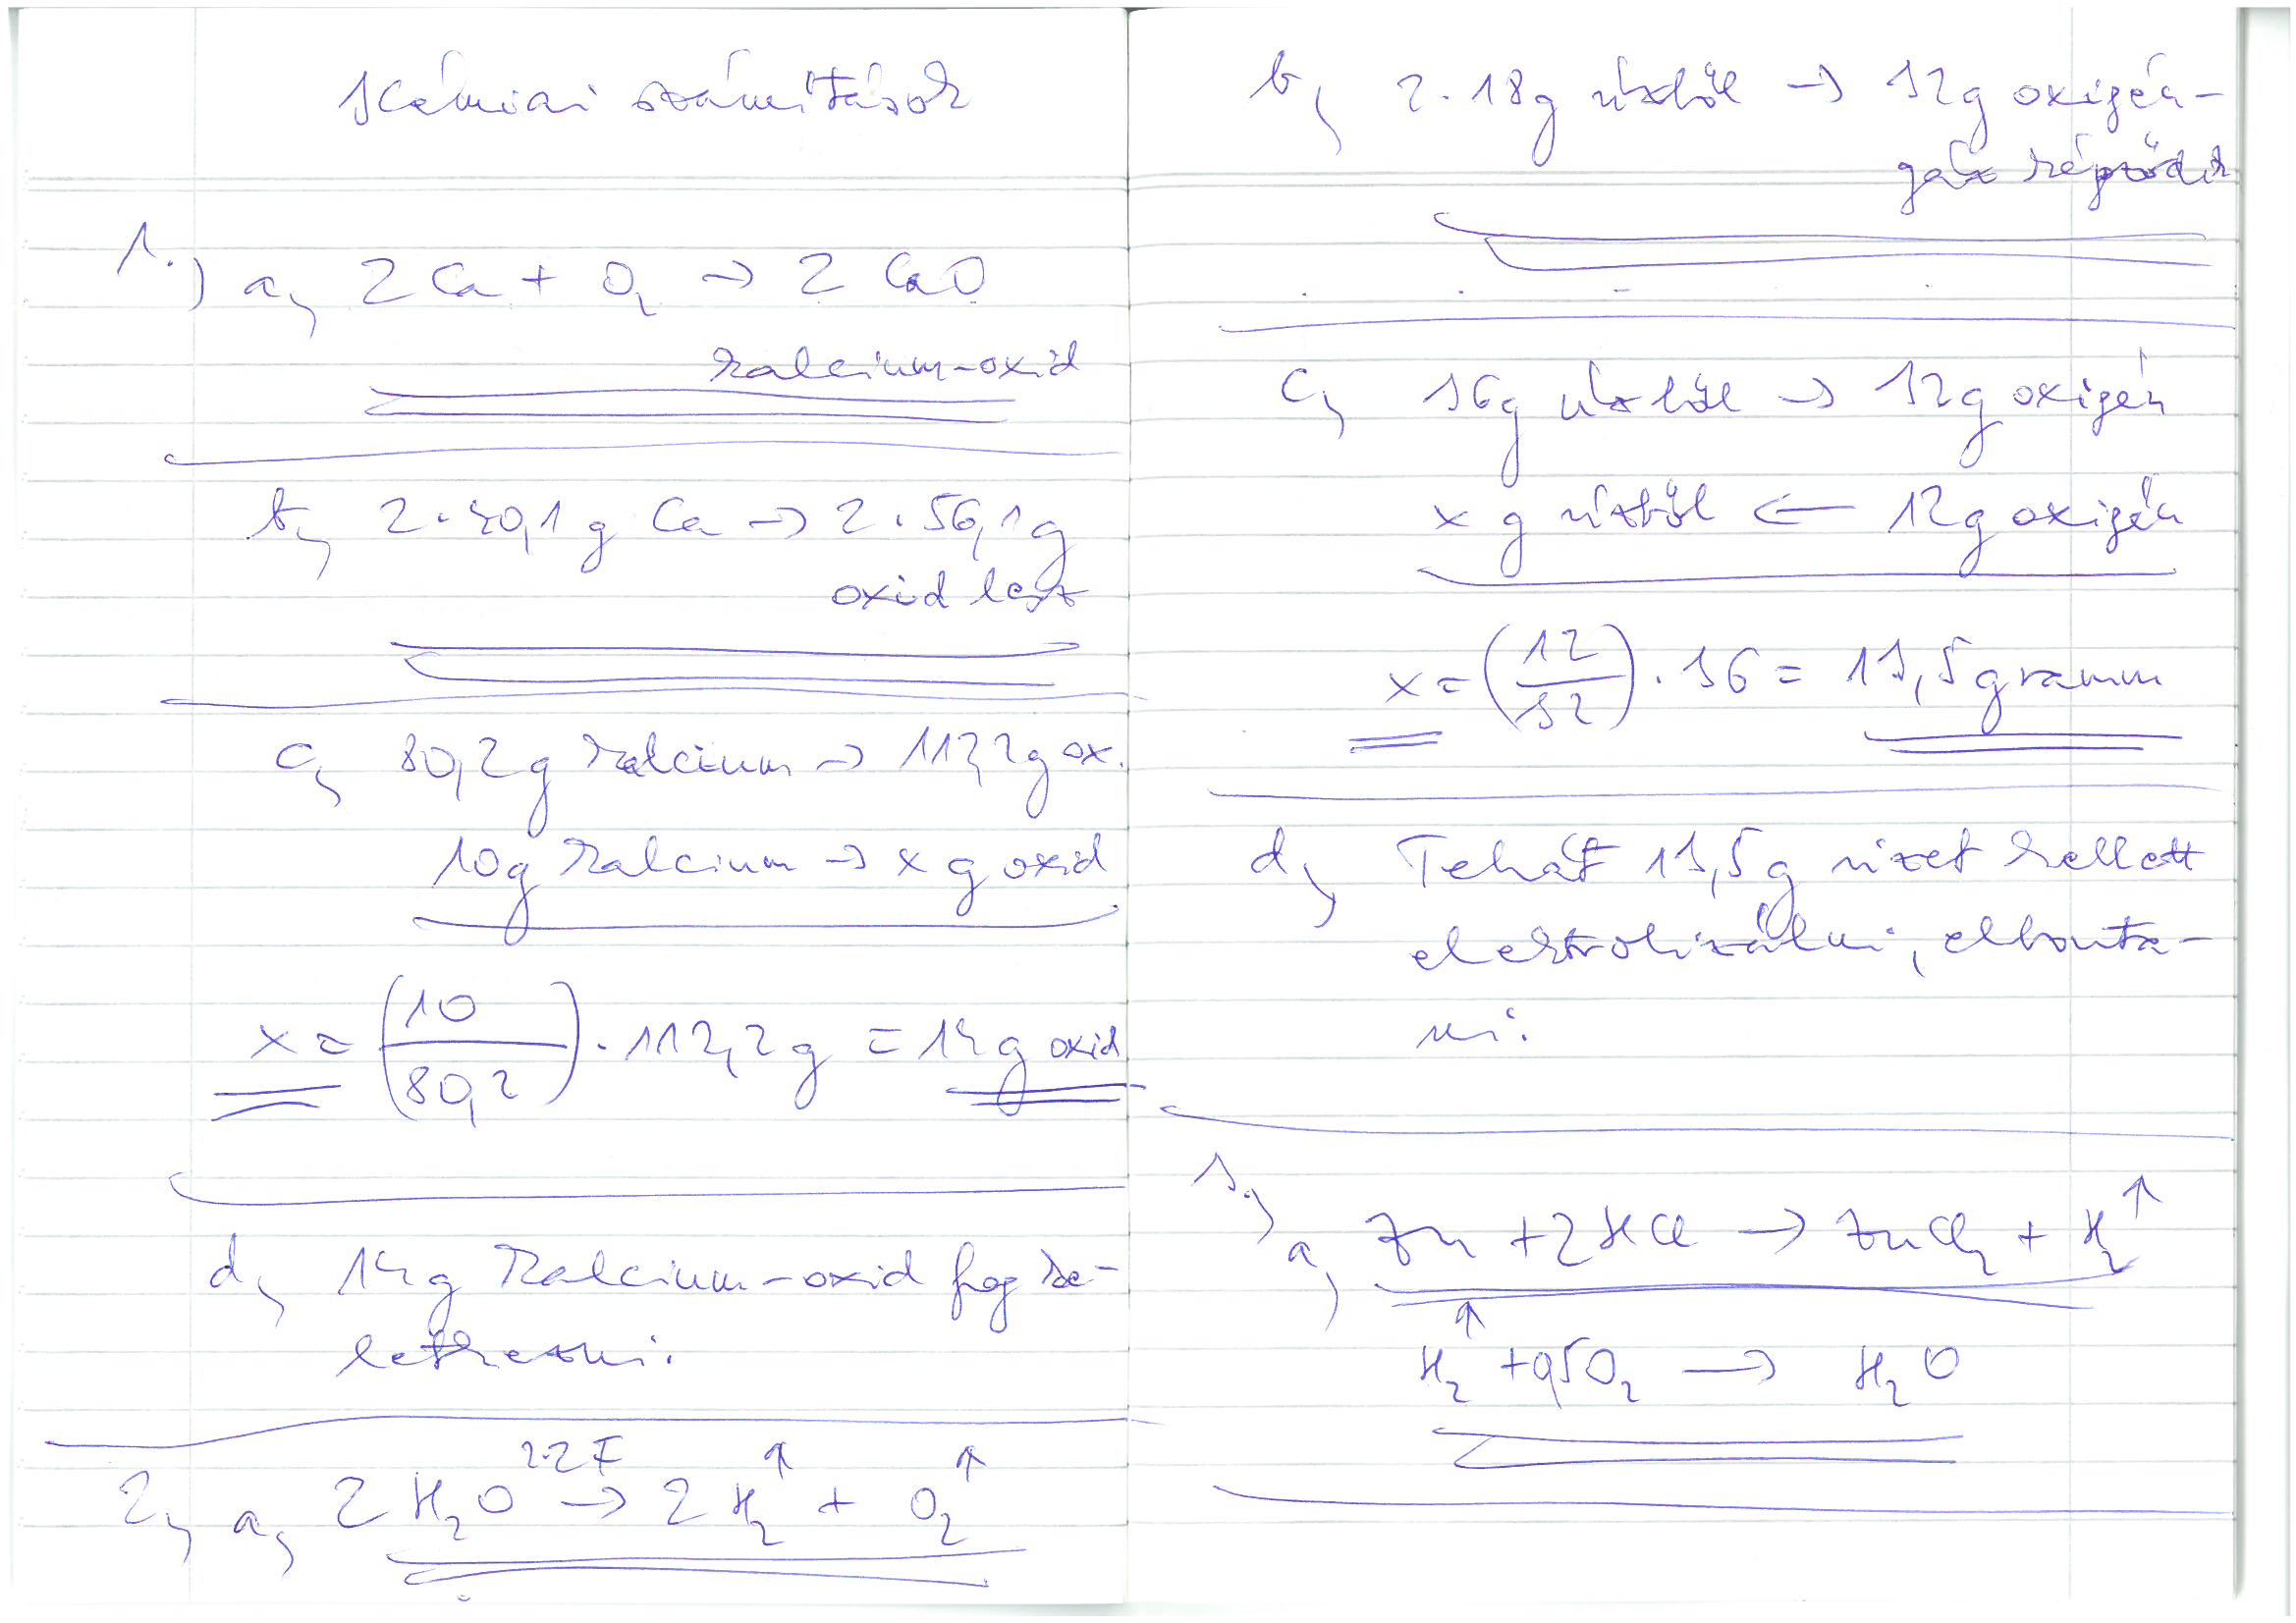 Kémiai számítások
1.) a, 2 Ca + O₂ → 2 CaO
kalcium-oxid
b, 2·40,1 g Ca → 2·56,1 g
oxid lesz
c, 80,2 g kalcium → 112,2 g ox.
10 g kalcium → x g oxid
x = (10/80,2) · 112,2 g = 14 g oxid
d, 14 g kalcium-oxid fog ke-
letkezni.
2, a, 2 H₂O 2·2F → 2 H₂↑ + O₂↑
b, 2·18 g vízből → 32 g oxigén-
gáz képződik
c, 36 g vízből → 32 g oxigén
x g vízből ← 12 g oxigén
x = (12/32) · 36 = 13,5 gramm
d, Tehát 13,5 g vizet kellett
elektrolizálni, elbonta-
ni.
3.) a, Zn + 2 HCl → ZnCl₂ + H₂↑
H₂↑ + 0,5 O₂ → H₂O